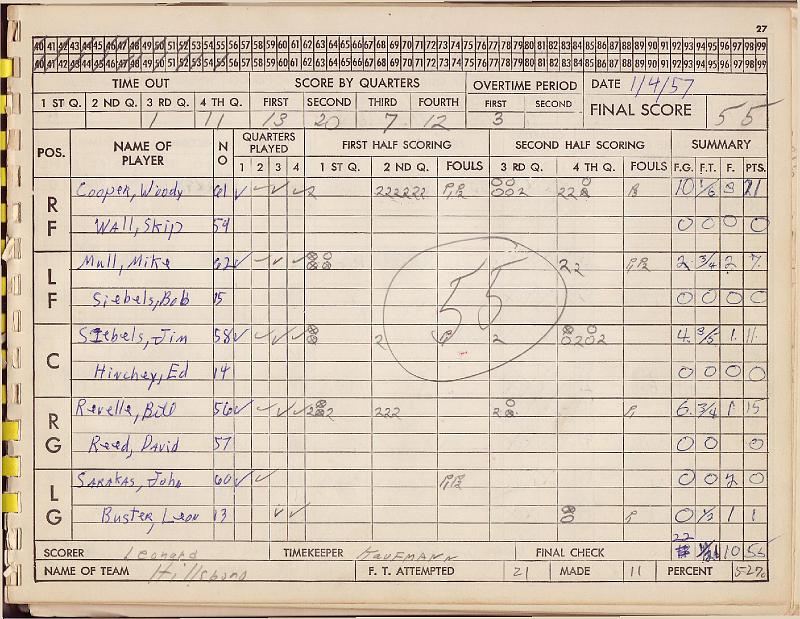 27
40 41 42 43 44 45 46 47 48 49 50 51 52 53 54 55 56 57 58 59 60 61 62 63 64 65 66 67 68 69 70 71 72 73 74 75 76 77 78 79 80 81 82 83 84 85 86 87 88 89 90 91 92 93 94 95 96 97 98 99
40 41 42 43 44 45 46 47 48 49 50 51 52 53 54 55 56 57 58 59 60 61 62 63 64 65 66 67 68 69 70 71 72 73 74 75 76 77 78 79 80 81 82 83 84 85 86 87 88 89 90 91 92 93 94 95 96 97 98 99
TIME OUT SCORE BY QUARTERS OVERTIME PERIOD DATE 1/4/57
1 ST Q. 2 ND Q. 3 RD Q. 4 TH Q. FIRST SECOND THIRD FOURTH FIRST SECOND FINAL SCORE 55
1 11 13 20 7 12 3
POS. NAME OF PLAYER NO QUARTERS PLAYED FIRST HALF SCORING SECOND HALF SCORING SUMMARY
1 2 3 4 1 ST Q. 2 ND Q. FOULS 3 RD Q. 4 TH Q. FOULS F.G. F.T. F. PTS.
RF Cooper, Woody 61 2 222222 P1 P2 002 22 P3 10 1/6 3 21
Wall, Skip 59 0 0 0 0
LF Mull, Mike 62 22 P1 P2 2 3/4 2 7
Siebels, Bob 15 0 0 0 0
55
C Siebels, Jim 58 2 P1 2 0202 4 3/5 1 11
Hinchey, Ed 14 0 0 0 0
RG Revelle, Bill 56 222 P1 6 3/4 1 15
Reed, David 57 0 0 0
LG Sarakas, John 60 P1 P2 0 0 2 0
Buster, Leon 13 P1 0 1/2 1 1
SCORER Leonard TIMEKEEPER Kaufmann FINAL CHECK 22 11/21 10 55
NAME OF TEAM Hillsboro F. T. ATTEMPTED 21 MADE 11 PERCENT 52%